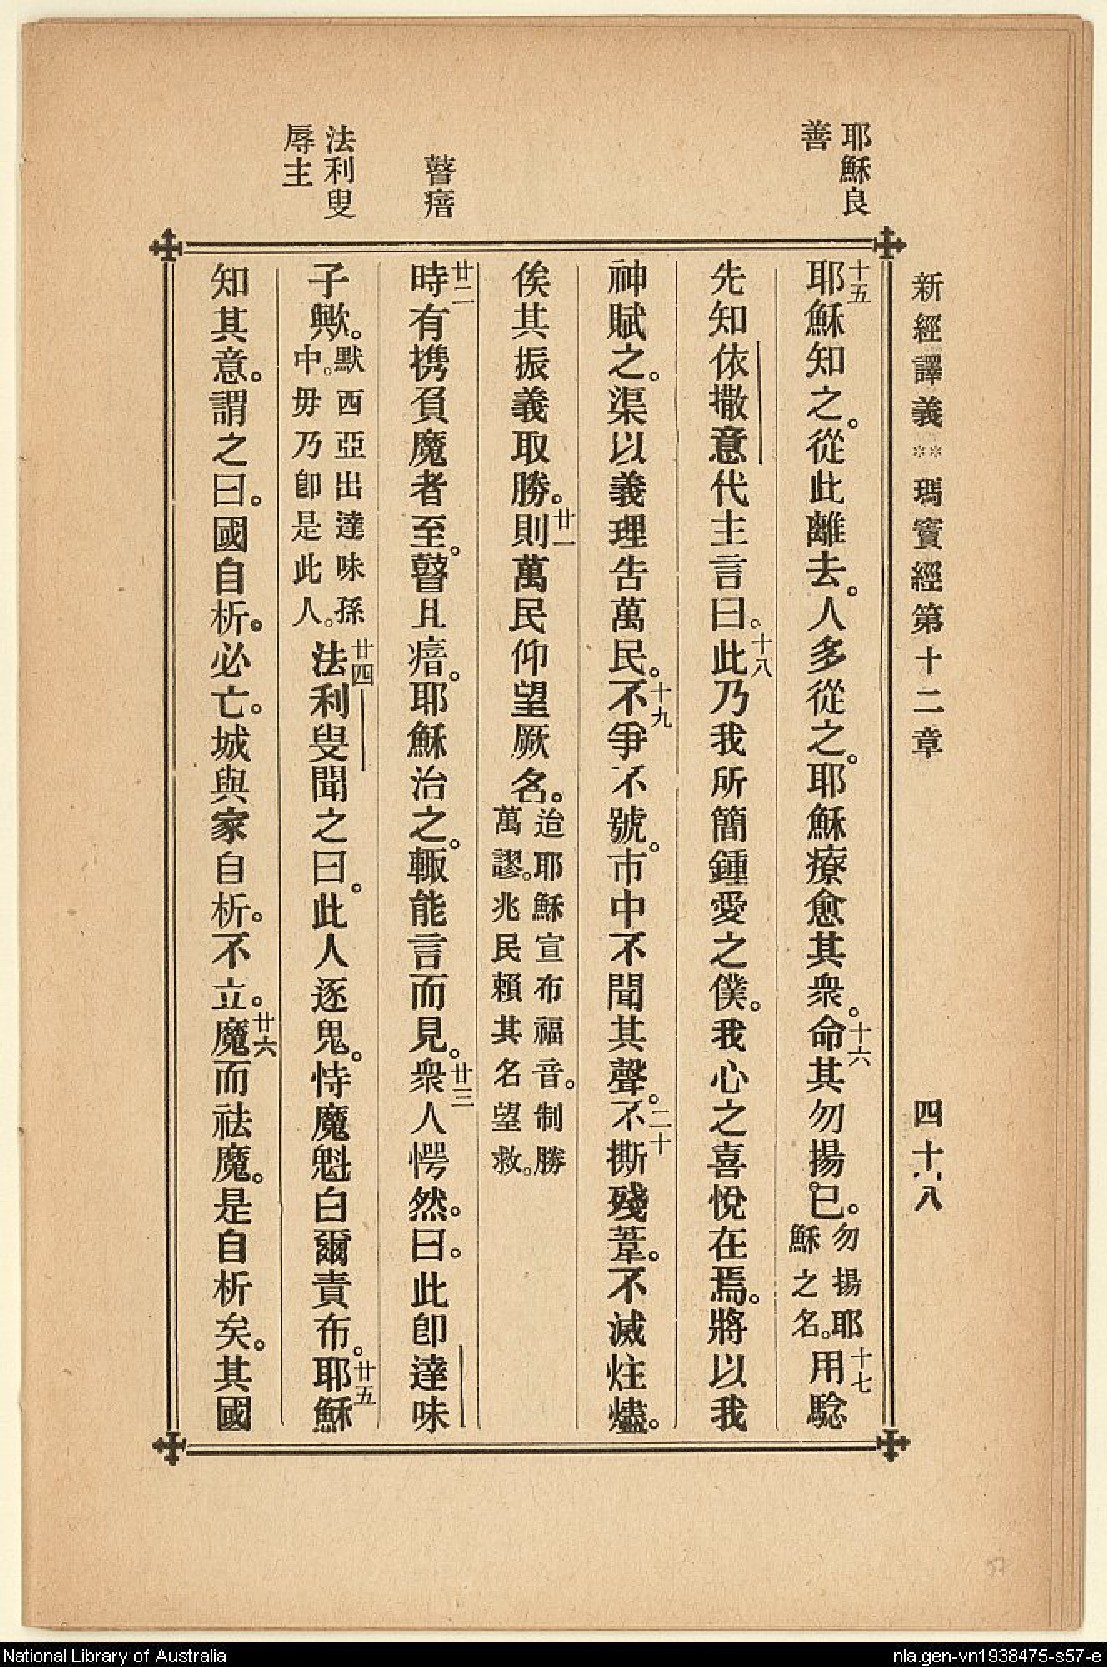 新經譯義 ⁂ 瑪竇經第十二章 四十八
耶穌良
善
瞽瘖
法利叟
辱主
十五耶穌知之。從此離去。人多從之。耶穌療愈其衆。十六命其勿揚已。勿揚耶穌之名。十七用騐
先知依撒意代主言曰。十八此乃我所簡鍾愛之僕。我心之喜悅在焉。將以我
神賦之。渠以義理告萬民。十九不爭不號。市中不聞其聲。二十不撕殘葦。不滅炷燼。
俟其振義取勝。廿一則萬民仰望厥名。迨耶穌宣布福音。制勝萬謬。兆民賴其名望救。
廿二時有携負魔者至。瞽且瘖。耶穌治之。輒能言而見。廿三衆人愕然。曰。此卽達味
子歟。默西亞出達味孫中。毋乃卽是此人。廿四法利叟聞之曰。此人逐鬼。恃魔魁白爾責布。廿五耶穌
知其意。謂之曰。國自析。必亡。城與家自析。不立。廿六魔而祛魔。是自析矣。其國
National Library of Australia
nla.gen-vn1938475-s57-e